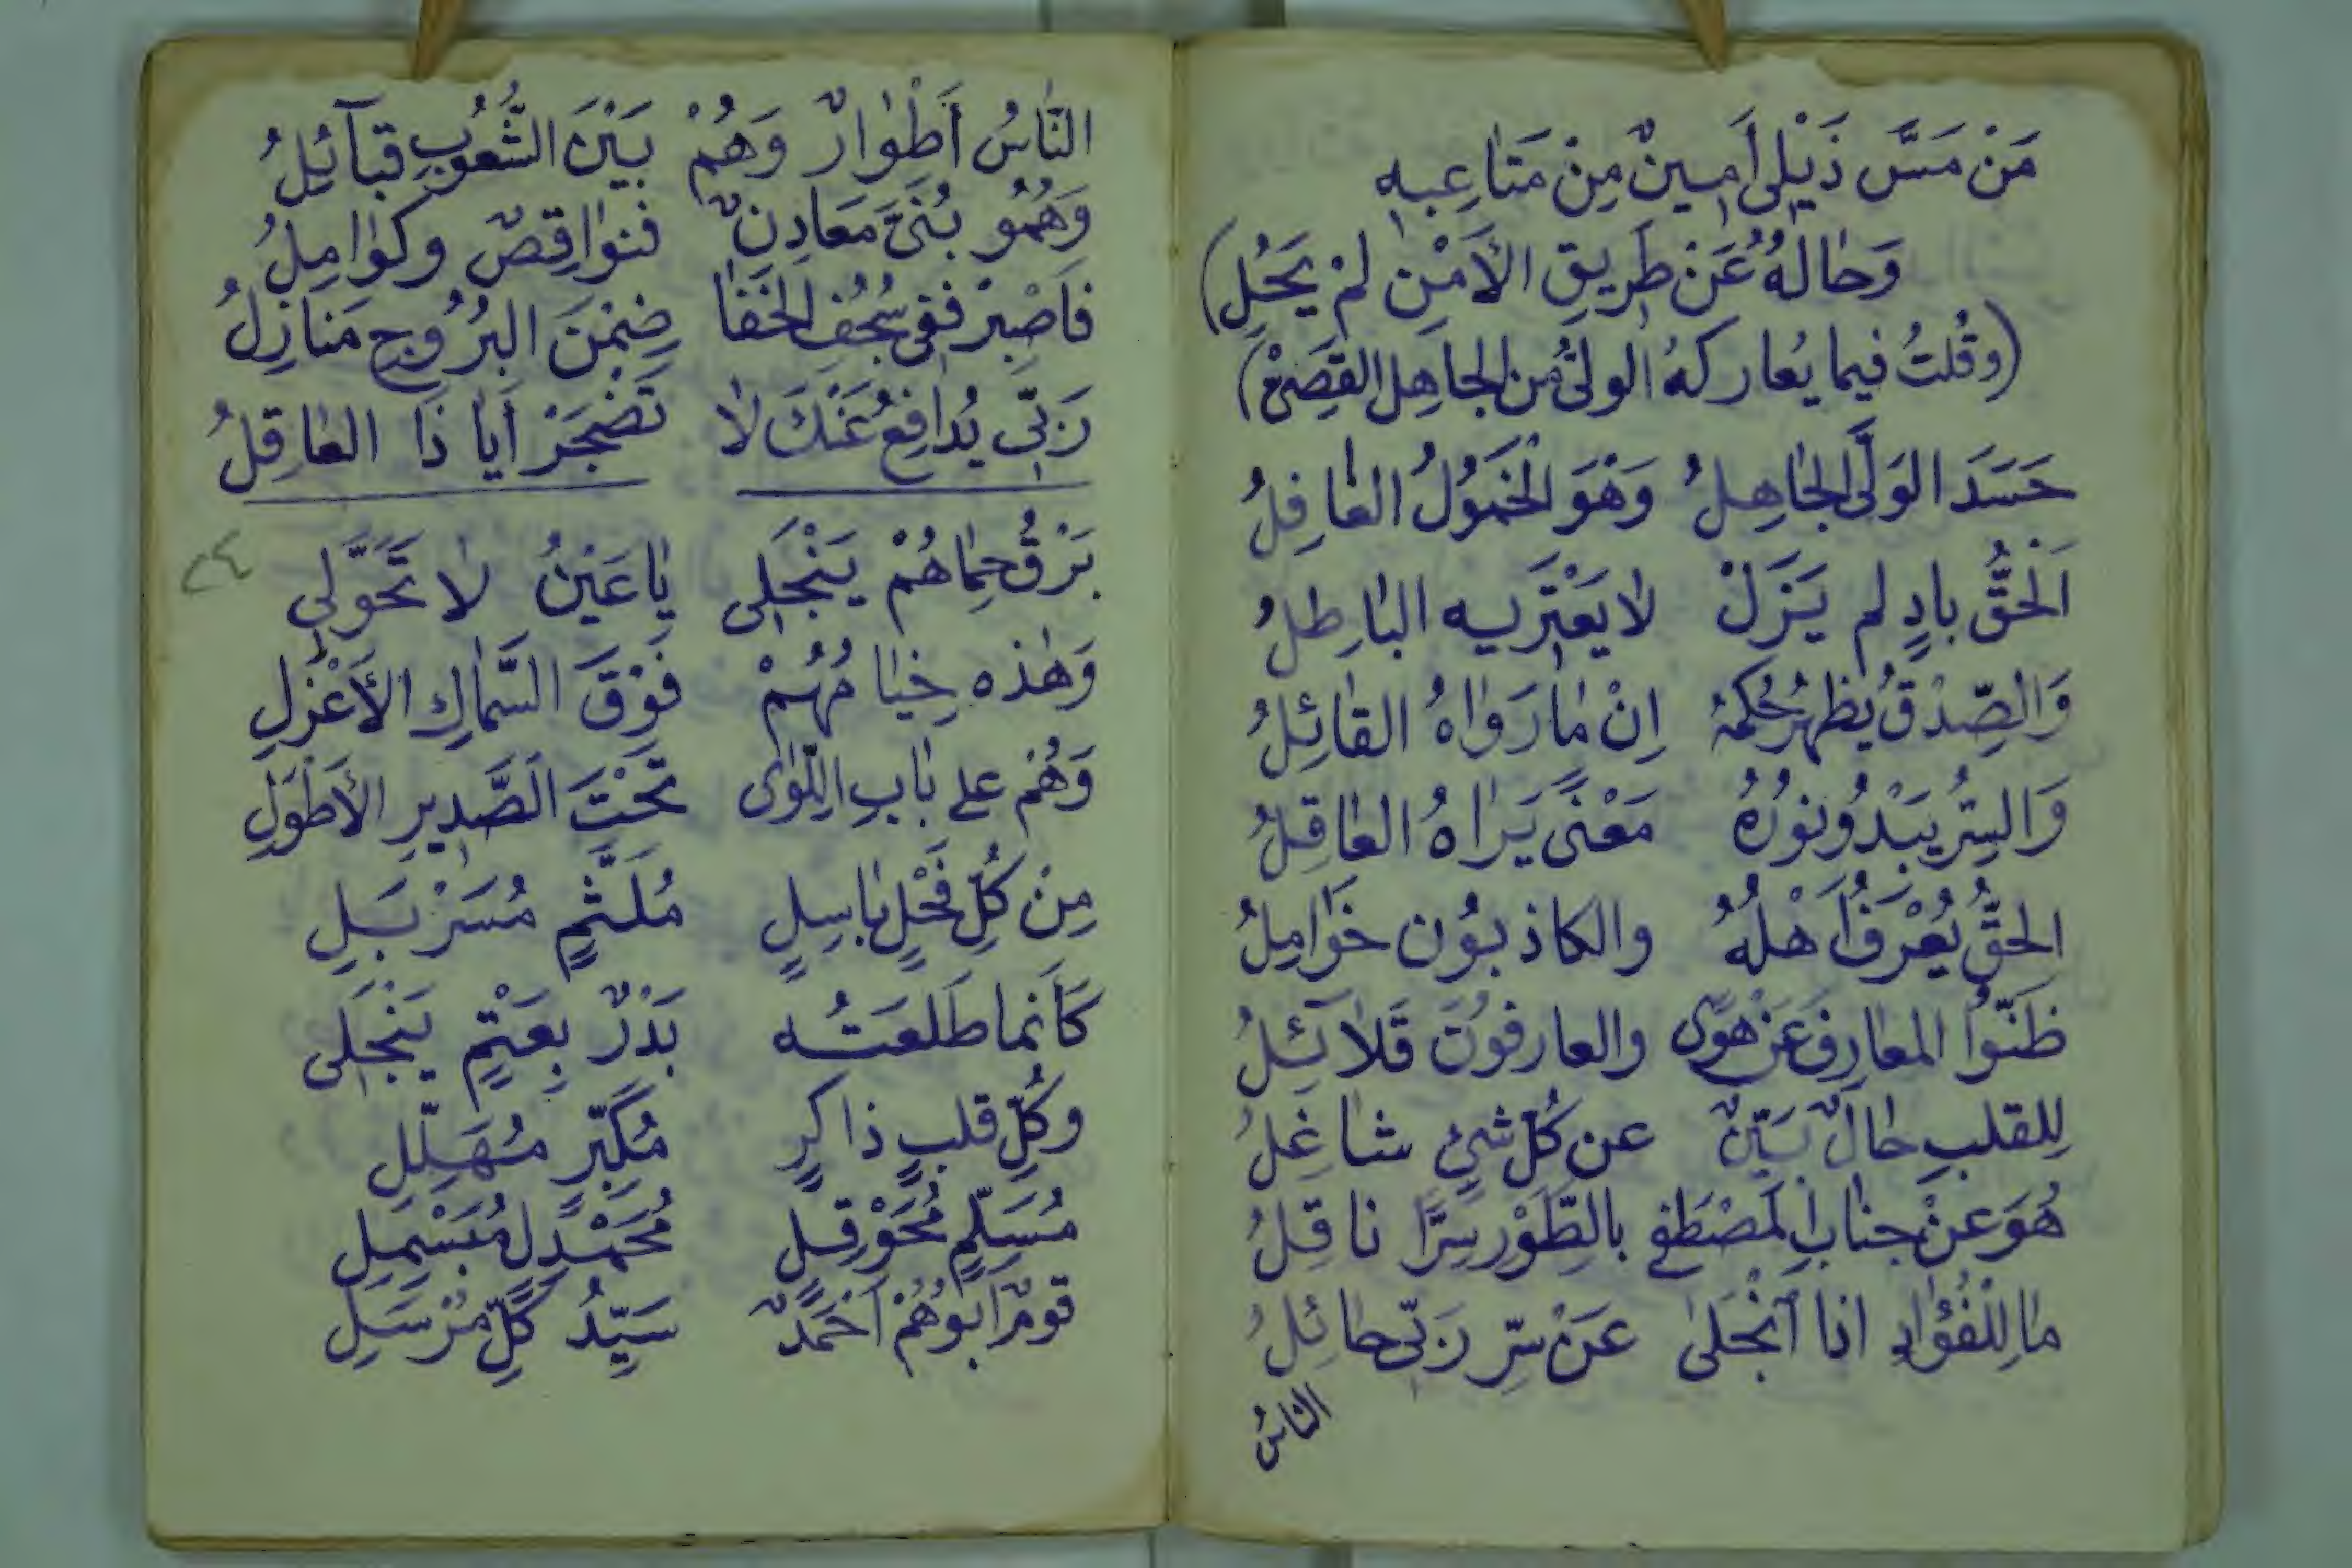 مَنْ مَسَّ ذَيْلِي أَمِينٌ مِنْ مَتَاعِبِهِ
وَحَالُهُ عَنْ طَرِيقِ الأَمْنِ لَمْ يَحُلِ)
(وقُلتُ فيما يُعاركهُ الوليُّ من الجاهِل القَصِيْ)
حَسَدَ الوَلَيَّ الجَاهِلُ وَهْوَ الْخَمُولُ الغَافِلُ
اَلْحَقُّ بادٍ لم يَزَلْ لا يَعْتَرِيهِ البَاطِلُ
وَالصِّدْقُ يُظْهِرُ حُكْمَهُ اِنْ مَا رَوَاهُ القَائِلُ
وَالسِّرُّ يَبْدُو نُورُهُ مَعْنًى يَرَاهُ العَاقِلُ
الحَقُّ يُعْرَفُ أَهْلُهُ والكاذبُون خَوَامِلُ
ظَنُّوا المعَارِفَ عَنْ هَوًى والعارفُونَ قَلَائِلُ
لِلقلبِ حَالٌ بَيِّنٌ عن كُلِّ شيءٍ شاغِلُ
هُوَ عنْ جنابِ المُصْطَفى بالطَّوْرِ سِرًّا ناقِلُ
مَا لِلْفُؤادِ اذا اَنْجَلَى عَنْ سِرِّ رَبّي حائِلُ
الناسُ
النَّاسُ أَطْوَارٌ وَهُمْ بَيْنَ الشُّعُوبِ قبَآئِلُ
وَهُمُو بُنَيَّ مَعَادِنٌ فنوَاقِصٌ وكوَامِلُ
فَاصْبِرْ ففي سُجُفِ الخَفَا ضِمْنَ البُرُوجِ مَنازِلُ
رَبّي يُدافِعُ عَنْكَ لا تَضْجَرْ اَيَا ذَا العَاقِلُ
٢٤
بَرْقُ حِمَاهُمْ يَنْجَلِي يَا عَيْنُ لا تَحَوَّلِي
وَهَذه خِيَامُهُمْ فَوْقَ السَّمَاكِ الأَعْزَلِ
وَهُم على بَابِ اللِّوَى تَحْتَ الصَّدِيرِ الأَطْوَلِ
مِنْ كُلِّ فَحْلٍ بَاسِلٍ مُلَثَّمٍ مُسَرْبَلِ
كَأَنما طَلعَتُه بَدْرٌ بِعَتْمٍ يَنْجَلي
وكُلِّ قلبٍ ذاكرٍ مُكَبِّرٍ مُهَلِّلِ
مُسَلِّمٍ مُحَوْقِلٍ مُحَمْدِلٍ مُبَسْمِلِ
قومٌ اَبُوهُمْ اَحْمَدٌ سَيِّدُ كُلِّ مُرْسَلِ